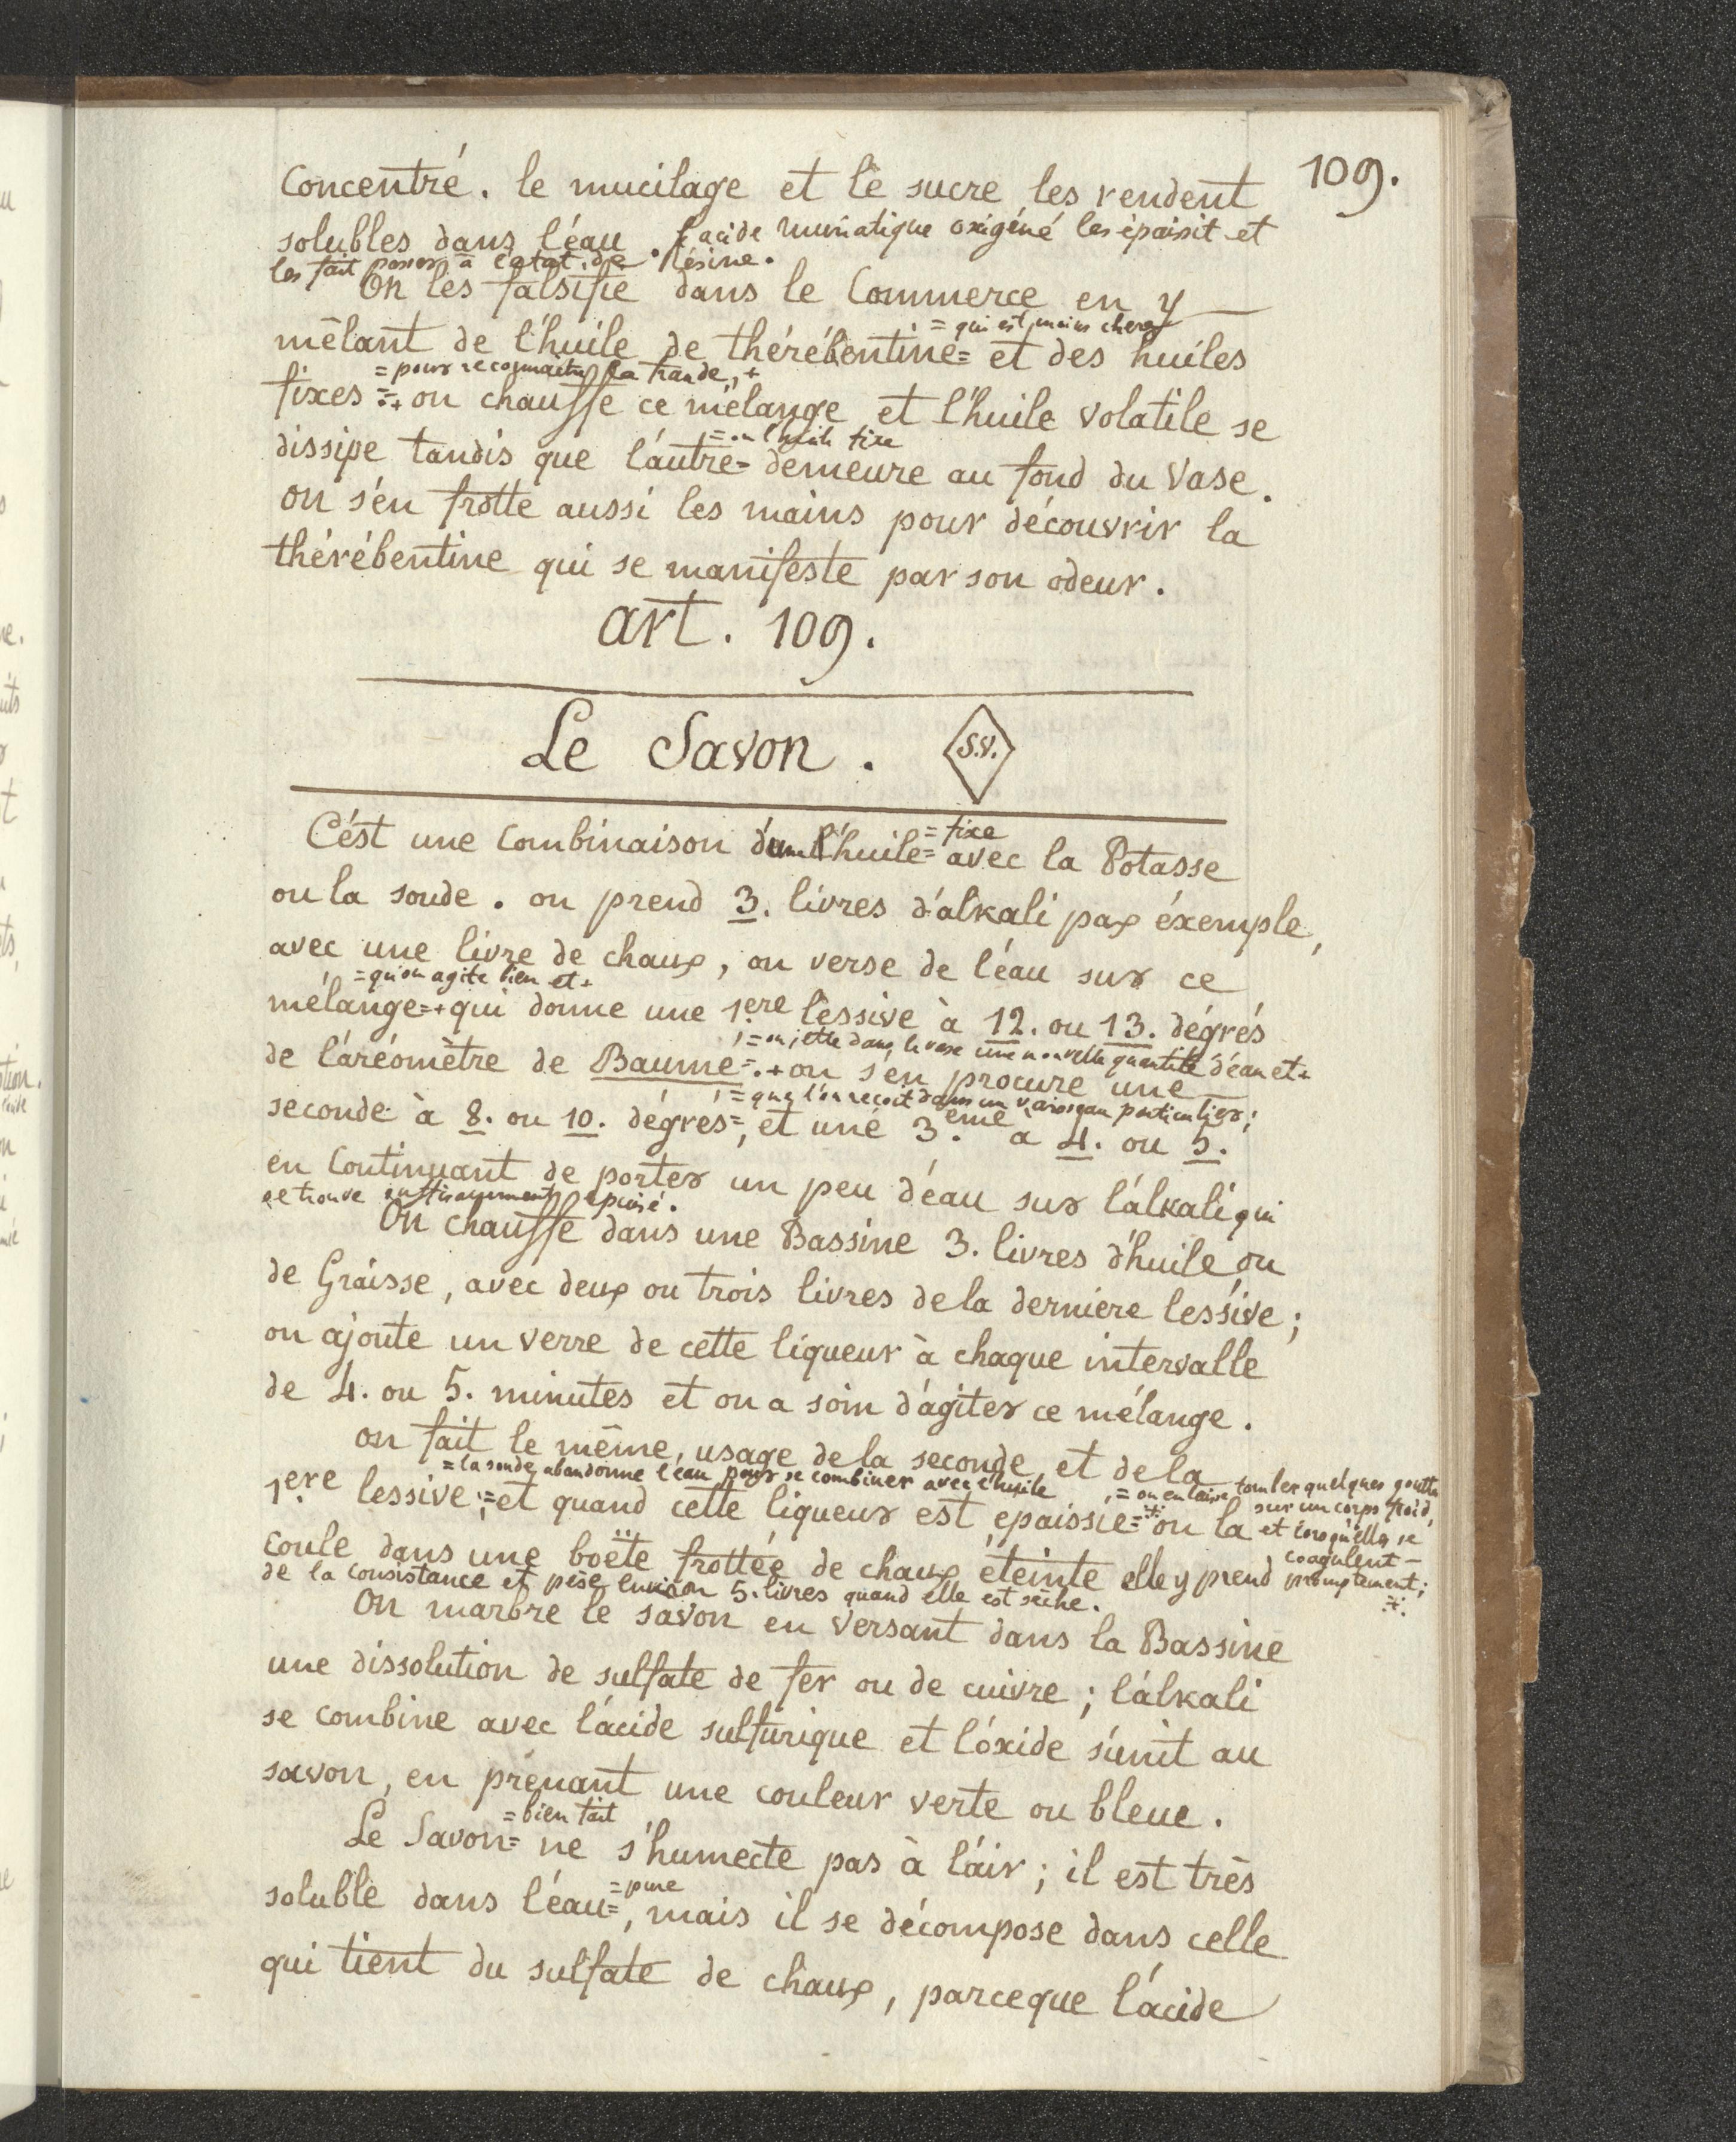 109.
concentré. le mucilage et le sucre les rendent
solubles dans l'éau. l'acide muriatique oxigéné les épaissit et
les fait passer à l'etat de Résine.
On les falsifie dans le Commerce en y
= qui est moins chere
mêlant de l'huile de thérébentine= et des huiles
= pour reconnaitre la fraude, +
fixes =.+ on chauffe ce mélange et l'huile volatile se
= ou l'huile fixe
dissipe tandis que l'autre= demeure au fond du Vase.
on s'en frotte aussi les mains pour découvrir la
thérébentine qui se manifeste par son odeur.
art. 109.
Le Savon. S.V.
= fixe
C'ést une Combinaison d'une huile= avec la Potasse
ou la soude. on prend 3. livres d'alkali par éxemple,
avec une livre de chaux, on verse de l'éau sur ce
= qu'on agite bien et +
mélange=+ qui donne une 1ere lessive à 12. ou 13. dégrés
= on jette dans le vase une nouvelle quantité d'éau et +
de l'aréomètre de Baume=.+ on s'en procure une
= que l'on reçoit dans un vaisseau particulier;
seconde à 8. ou 10. dégrés=, et une 3.eme à 4. ou 5.
en Continuant de porter un peu d'éau sur l'alkali qui
se trouve suffisamment épuisé.
On chauffe dans une Bassine 3. livres d'huile ou
de Graisse, avec deux ou trois livres de la derniere lessive;
on ajoute un verre de cette liqueur à chaque intervalle
de 4. ou 5. minutes et on a soin d'agiter ce mélange.
on fait le même usage de la seconde et de la
= la soude abandonne l'eau pour se combiner avec l'huile
= on en laisse tomber quelques goutte
sur un corps froid,
et lorsqu'elles se
coagulent
promptement;
1ere lessive;= et quand cette liqueur est epaissie= on la
coule dans une boëte frottée de chaux éteinte elle y prend
de la consistance et pèse environ 5. livres quand elle est sèche.
On marbre le savon en versant dans la Bassine
une dissolution de sulfate de fer ou de cuivre; l'alkali
se combine avec l'acide sulfurique et l'oxide s'unit au
savon, en prenant une couleur verte ou bleue.
= bien fait
Le Savon= ne s'humecte pas à l'air; il est très
= pure
soluble dans l'éau=, mais il se décompose dans celle
qui tient du sulfate de chaux, parceque l'acide